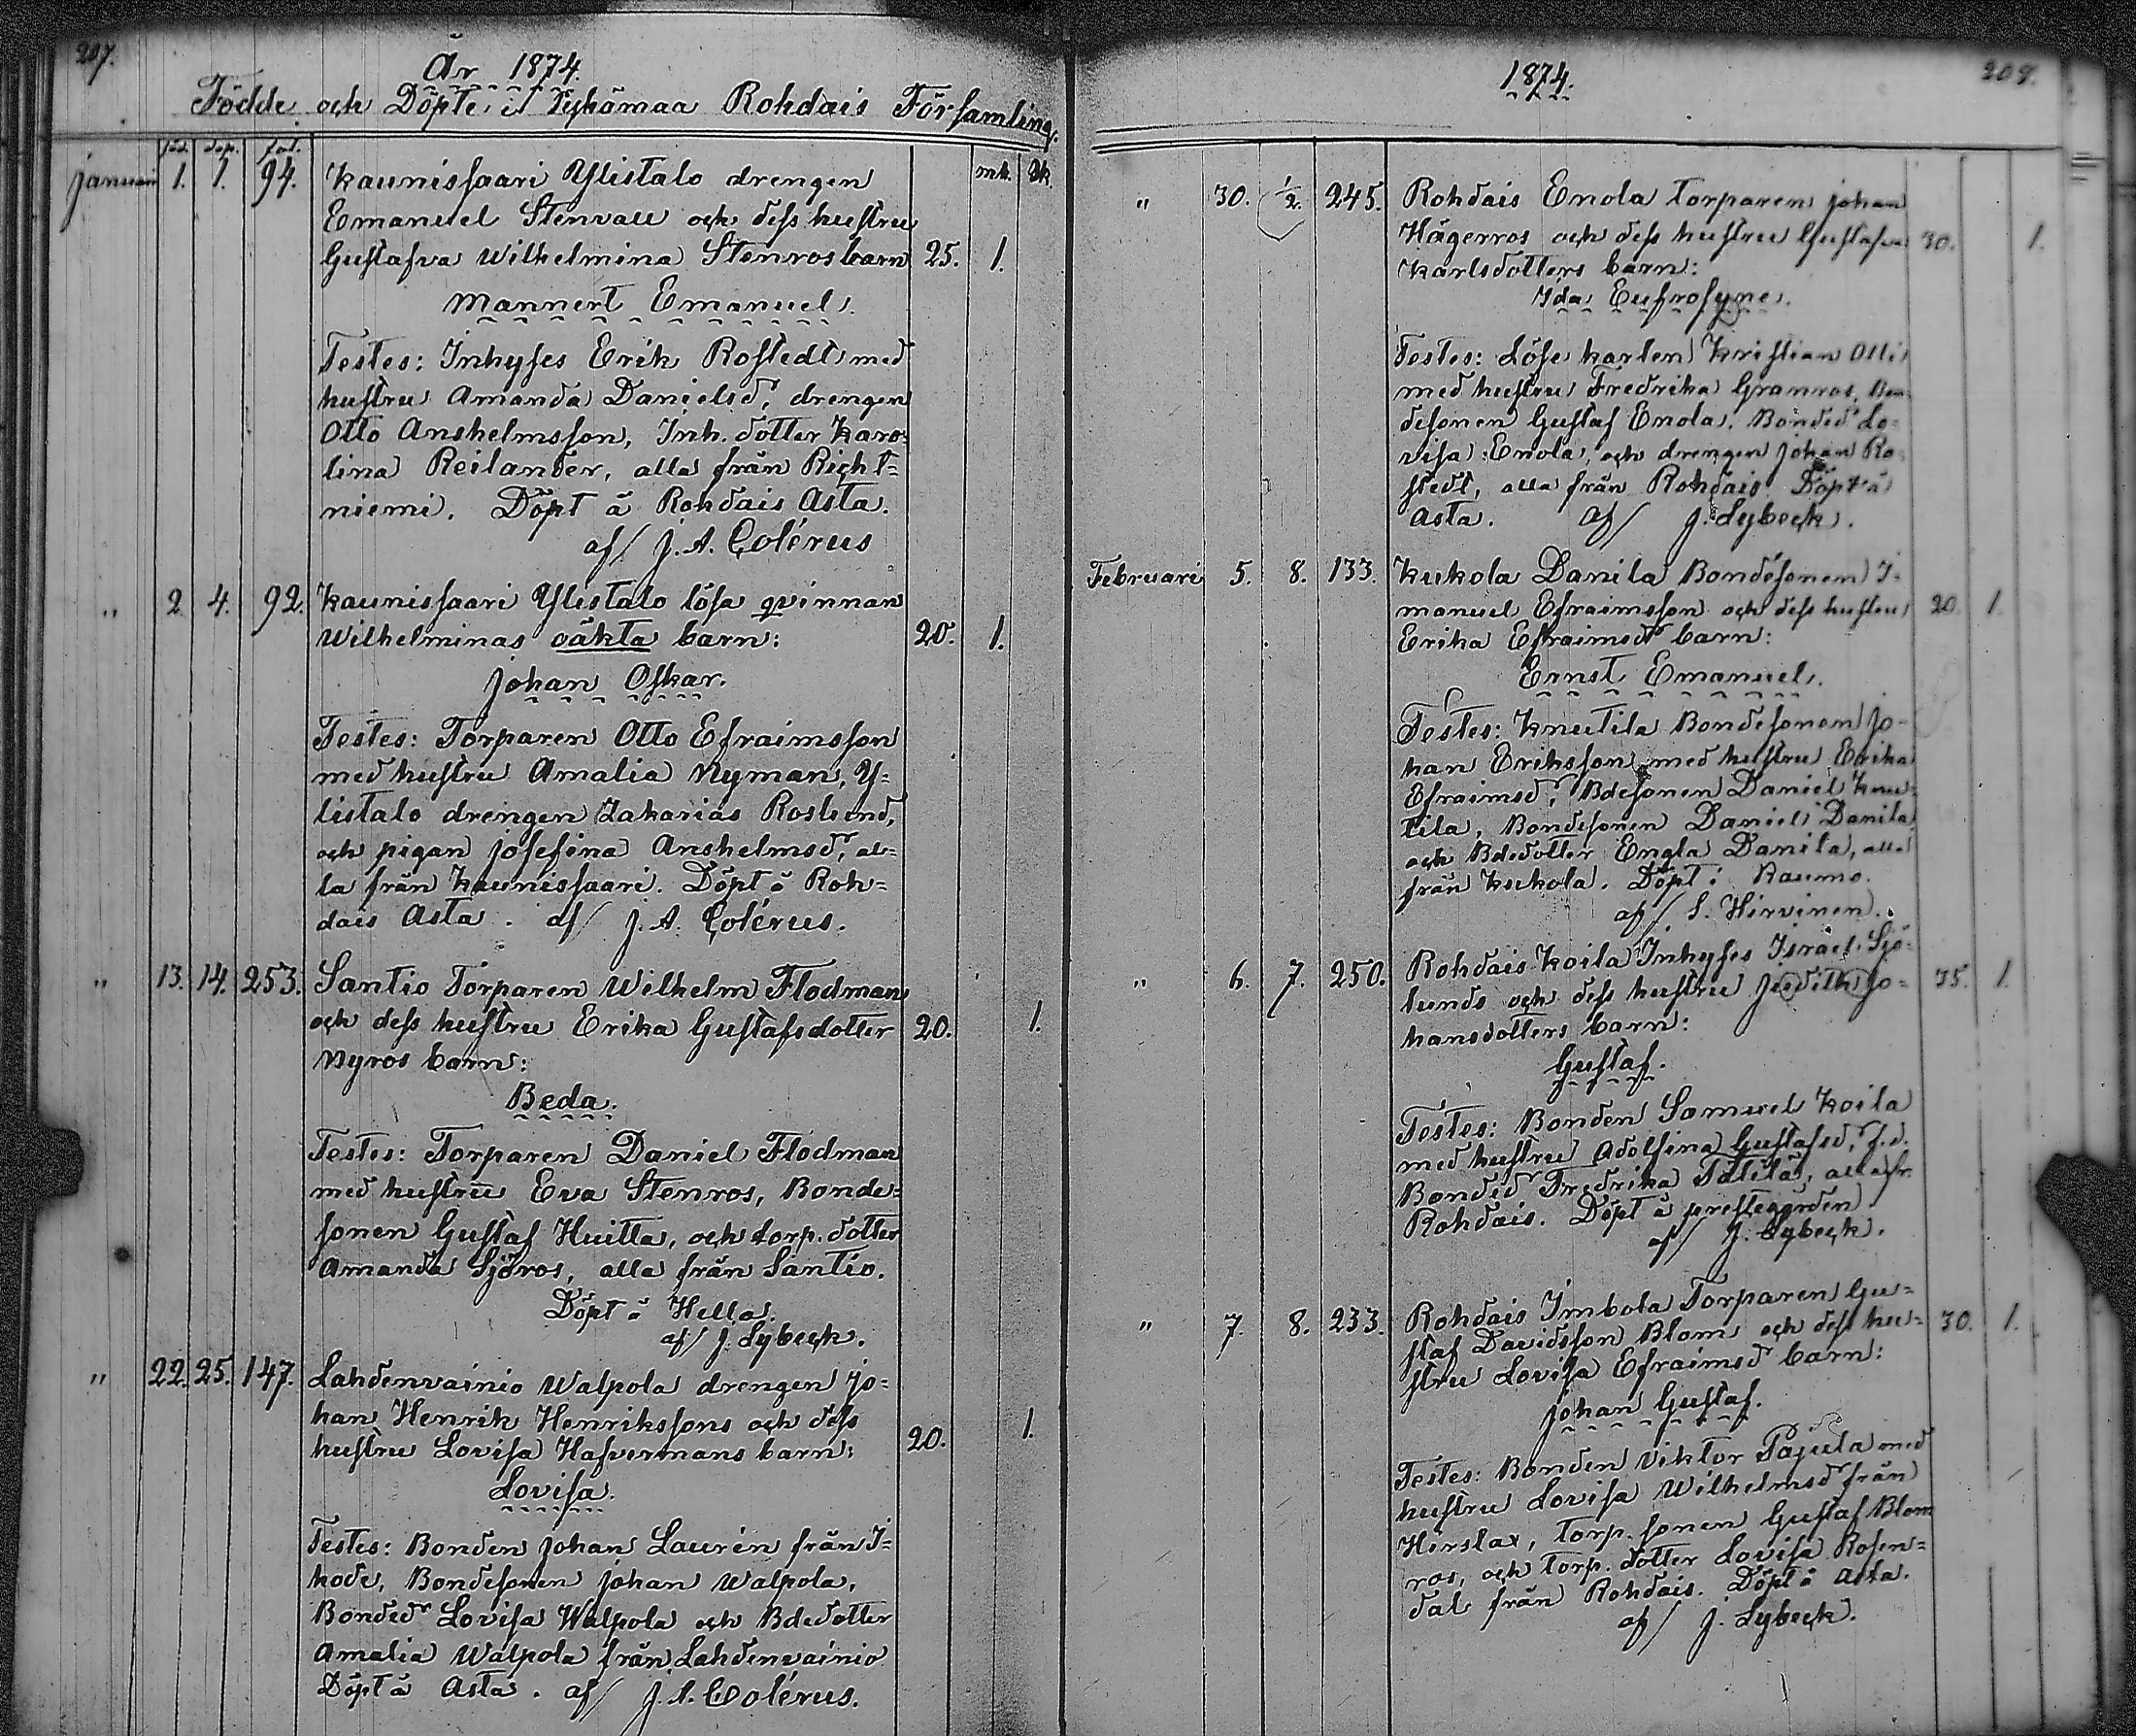 207.
År 1874.
Födde och Döpte i Pyhämaa Rohdais Församling.
föd. döp. fol.
mk. Qk.
Januari 1. 1. 94. Kaunissaari Ylistalo drengen
Emanuel Stenvall och dess hustru
Gustafva Wilhelmina Stenros barn 25. 1.
Mannert Emanuel.
Testes: Inhyses Erik Rostedt med
hustru Amanda Danielsdr, drengen
Otto Anshelmsson, Inh. dotter Karo-
lina Reilander, alla från Richt=
niemi. Döpt å Rohdais Asta.
af/ J. A. Colérus
" 2 4. 92. Kaunissaari Ylistalo lösa qvinnan
Wilhelminas oäkta barn: 20. 1.
Johan Oskar.
Testes: Torparen Otto Efraimsson
med hustru Amalia Nyman, Y=
listalo drengen Zakarias Roslund,
och pigan Josefina Anshelmsdr, al=
la från Kaunissaari. Döpt å Roh=
dais Asta. af/ J. A. Colérus.
" 13. 14. 253. Santio Torparen Wilhelm Flodman
och dess hustru Erika Gustafsdotter 20. 1.
Nyros barn:
Beda.
Testes: Torparen Daniel Flodman
med hustru Eva Stenros, Bonde=
sonen Gustaf Huitta, och torp. dotter
Amanda Sjöros, alla från Santio.
Döpt å Hella.
af/ J. Lybeck.
" 22. 25. 147. Lahdenvainio Walpola drengen Jo=
han Henrik Henrikssons och dess
hustru Lovisa Hafvermans barn: 20. 1.
Lovisa.
Testes: Bonden Johan Laurén från I=
hode, Bondesonen Johan Walpola,
Bondedr Lovisa Walpola och Bdedotter
Amalia Walpola från Lahdenvainio
Döpt å Asta. af/ J. A. Colérus.
1874.
" 30. 1/2. 245. Rohdais Enola Torparen Johan
Hägerros och dess hustru Gustafva 30. 1.
Karlsdotters barn:
Ida Eufrosyne.
Testes: Löse karlen Kristian Otti
med hustru Fredrika Granros, Bon-
desonen Gustaf Enola, Bondedr Lo=
visa Enola, och drengen Johan Ro=
stedt, alla från Rohdais. Döpt å
Asta. af/ J. Lybeck.
Februari 5. 8. 133. Kukola Danila Bondesonen I=
manuel Efraimsson och dess hustru 20. 1.
Erika Efraimsdr barn:
Ernst Emanuel.
Testes: Knutila Bondesonen Jo-
han Eriksson med hustru Erika
Efraimsdr, Bdesonen Daniel Knu-
tila, Bondesonen Daniel Danila
och Bdedotter Engla Danila, alla
från Kukola. Döpt i Raumo.
af/ S. Hirvinen.
" 6. 7. 250. Rohdais Koila Inhyses Israel Sjö=
lunds och dess hustru Judith Jo= 35. 1.
hansdotters barn:
Gustaf.
Testes: Bonden Samuel Koila
med hustru Adolfina Gustafsdr, f.d.
Bondedr Fredrika Tätilä, alla fr.
Rohdais. Döpt å prestegården
af/ J. Lybeck.
" 7. 8. 233. Rohdais Imbola Torparen Gu=
staf Davidsson Blom och dess hu= 30. 1.
stru Lovisa Efraimsd barn:
Johan Gustaf.
Testes: Bonden Viktor Pajula med
hustru Lovisa Wilhelmsdr från
Hirslax, Torp. sonen Gustaf Blom
ros, och Torp. dotter Lovisa Rosen=
dal från Rohdais. Döpt å Asta.
af/ J. Lybeck.